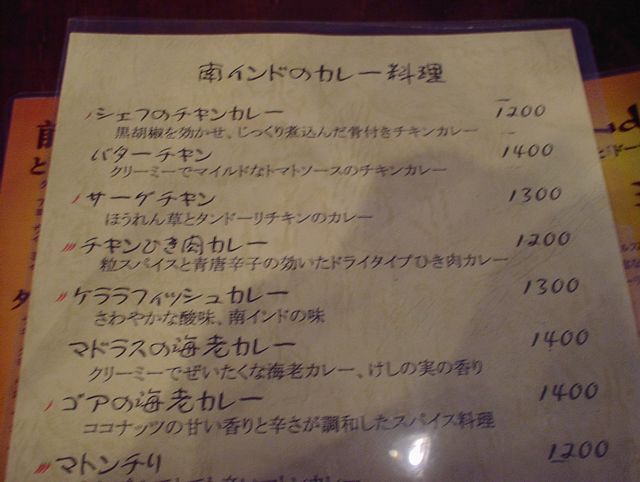 南インドのカレー料理
シェフのチキンカレー 1200
黒胡椒を効かせ、じっくり煮込んだ骨付きチキンカレー
バターチキン 1400
クリーミーでマイルドなトマトソースのチキンカレー
サーゲチキン 1300
ほうれん草とタンドーリチキンのカレー
チキンひき肉カレー 1200
粒スパイスと青唐辛子の効いたドライタイプひき肉カレー
ケララフィッシュカレー 1300
さわやかな酸味、南インドの味
マドラスの海老カレー 1400
クリーミーでぜいたくな海老カレー、けしの実の香り
ゴアの海老カレー 1400
ココナッツの甘い香りと辛さが調和したスパイス料理
マトンチリ 1200